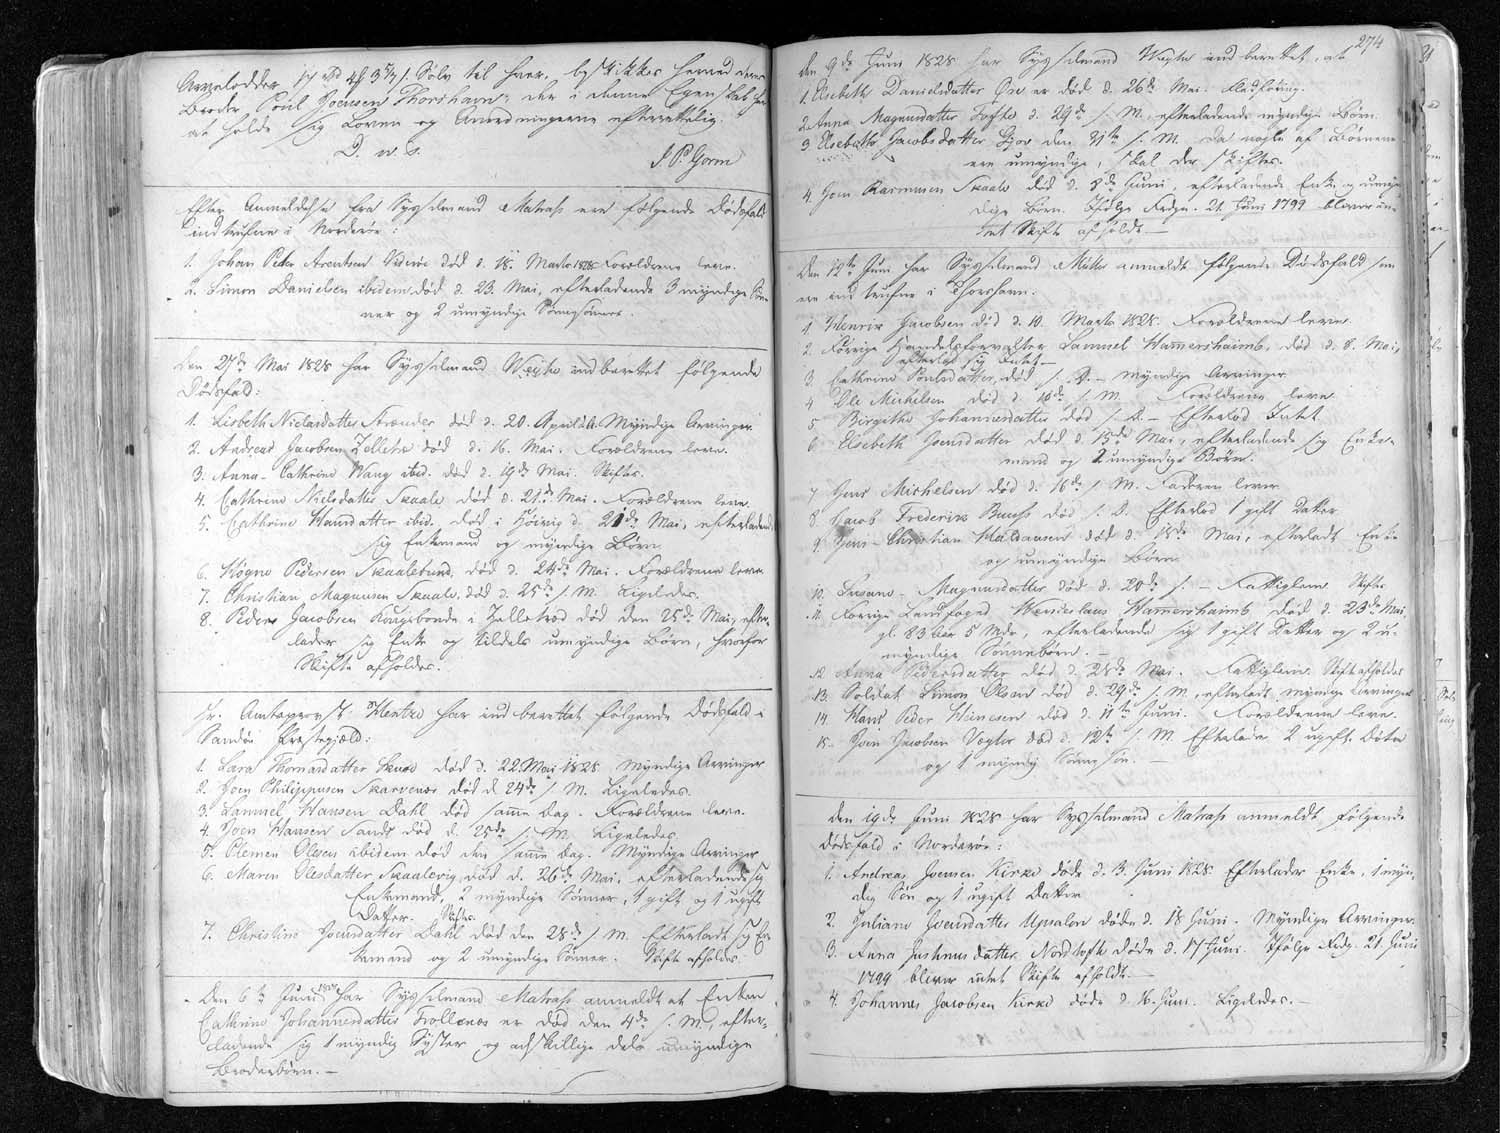 Arvelodder 4 f 3 5/7 s. Sølv til hver, beskikkes herved deres
Broder Poul Joensen Thorshavn, der i denne Egenskab har
at holde sig Loven og Anordningerne efterrettelig.
D. u. s.
J. P. Gorm
Efter Anmeldelse fra Sysselmand Matras ere følgende Dødsfald
indtrufne i Norderøe:
1. Johan Peder Arentsen Viderøe død d. 18. Marts 1828. Forældrene leve.
2. Simon Danielsen ibidem, død d. 23. Mai, efterladende 3 myndige Søn-
ner og 2 umyndige Sønnesønner.
Den 27de Mai 1828 har Sysselmand Weyhe indberettet følgende
Dødsfald:
1. Lisbeth Nielsdatter død d. 20. April d. A. Myndige Arvinger.
2. Andreas Jacobsen død d. 16. Mai. Forældrene leve.
3. Anna Cathrine Wang ibid. død d. 19de Mai. Skiftes.
4. Cathrine Nielsdatter Skaale død d. 21de Mai. Forældrene leve.
5. Cathrine Hansdatter ibid. død i d. 21de Mai, efterladende
sig Enkemand og myndige Børn.
6. Høgne Pedersen Skaalebund, død d. 24de Mai. Forældrene leve.
7. Christian Magnusen Skaale, død d. 25de s. M. Ligeledes.
8. Peder Jacobsen Kongsbonde i død den 25de Mai, efter-
lader sig Enke og tildels umyndige Børn, hvorfor
Skifte afholdes.
Hr. Amtsprovst Hentze har indberettet følgende Dødsfald i
Sandøe Præstegjæld:
1. Sara Thomasdatter død d. 22. Mai 1828. Myndige Arvinger.
2. Joen Philippusen Skarvenæs død d. 24de s. M. Ligeledes.
3. Samuel Hansen Dahl død samme Dag. Forældrene leve.
4. Joen Hansen Sand død d. 25de s. M. Ligeledes.
5. Clemen Olesen ibidem død den samme Dag. Myndige Arvinger
6. Maren Olesdatter Skaalevig, død d. 26de Mai, efterladende sig
Enkemand, 2 myndige Sønner, 1 gift og 1 ugift
Datter. Skiftes.
7. Christine Joensdatter Dahl død den 28de s. M. Efterladt sig En-
kemand og 2 umyndige Sønner. Skifte afholdes.
Den 6te Juni 1828 har Sysselmand Matras anmeldt at Enken
Cathrine Johannesdatter Trøllenæs er død den 4de s. M., efter-
ladende sig 1 myndig Syster og adskillige dels umyndige
Broderbørn. —
274
Den 9de Juni 1828 har Sysselmand Weyhe indberettet, at
1. Elsebeth Danielsdatter Øre er død d. 26de Mai. Fladføring.
2. Anna Magnusdatter Tofte d. 29de s. M., efterladende myndige Børn.
3. Elsebeth Jacobsdatter Gjov den 31te s. M. Da nogle af Børnene
ere umyndige, skal der skiftes.
4. Joen Rasmusen Skaale død d. 8de Juni, efterladende Enke og umyn-
dige Børn. Ifølge Frdgn. 21. Juni 1799 bliver in-
tet Skifte afholdt —
Den 12te Juni har Sysselmand Müller anmeldt følgende Dødsfald som
ere indtrufne i Thorshavn.
1. Henrik Jacobsen død d. 10. Marts 1828. Forældrene leve.
2. Forrige Handelsforvalter Samuel Hammershaimb, død d. 8. Mai,
efterlod sig Intet —
3. Cathrine Poulsdatter, død s. D. — Myndige Arvinger.
4 Ole Michelsen død d. 10de s. M. Forældrene leve.
5 Birgithe Johannesdatter død s. D. — Efterlod Intet
6 Elsebeth Joensdatter død d. 15de Mai, efterladende sig Enke-
mand og 2 umyndige Børn.
7. Jens Michelsen død d. 16de s. M. Faderen lever.
8. Jacob Frederik død s. D. Efterlod 1 gift Datter
9. Jens Christian død d. 18de Mai, efterladt Enke
og umyndige Børn.
10. Susane Magnusdatter død d. 20de s. — Fattiglem Skiftes
11. Forrige Landfoged Wenceslaus Hammershaimb død d. 23de Mai,
gl. 83 Aar 5 Mdr., efterladende sig 1 gift Datter og 2 u-
myndige Sønnebørn. —
12. Anna Pedersdatter død d. 28de Mai. Fattiglem. Skift afholdes
13. Soldat Simon Olsen død d. 29de s. M., efterladt myndige Arvinger
14. Hans Peder Heinesen død d. 11te Juni. Forældrene leve.
15. Joen Jacobsen Vogter død d. 12te s. M. Efterlader 2 ugift Døtre
og 1 myndig Sønnesøn. —
Den 19de Juni 1828 har Sysselmand Matras anmeldt følgende
Dødsfald i Norderøe:
1. Andreas Joensen Kirke døde d. 3. Juni 1828. Efterlader Enke, 1 myn-
dig Søn og 1 ugift Datter
2. Juliane Joensdatter Upsalen døde d. 18 Juni. Myndige Arvinger.
3. Anna Justinusdatter Nordtofte døde d. 17 Juni. Ifølge Frdg. 21. Juni
1799 bliver intet Skifte afholdt. —
4. Johannes Jacobsen Kirke døde d. 16. Juni. Ligeledes. —